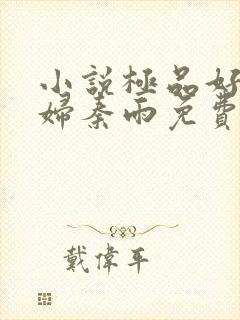 小說極品好
婦秦雨免費
戴偉平